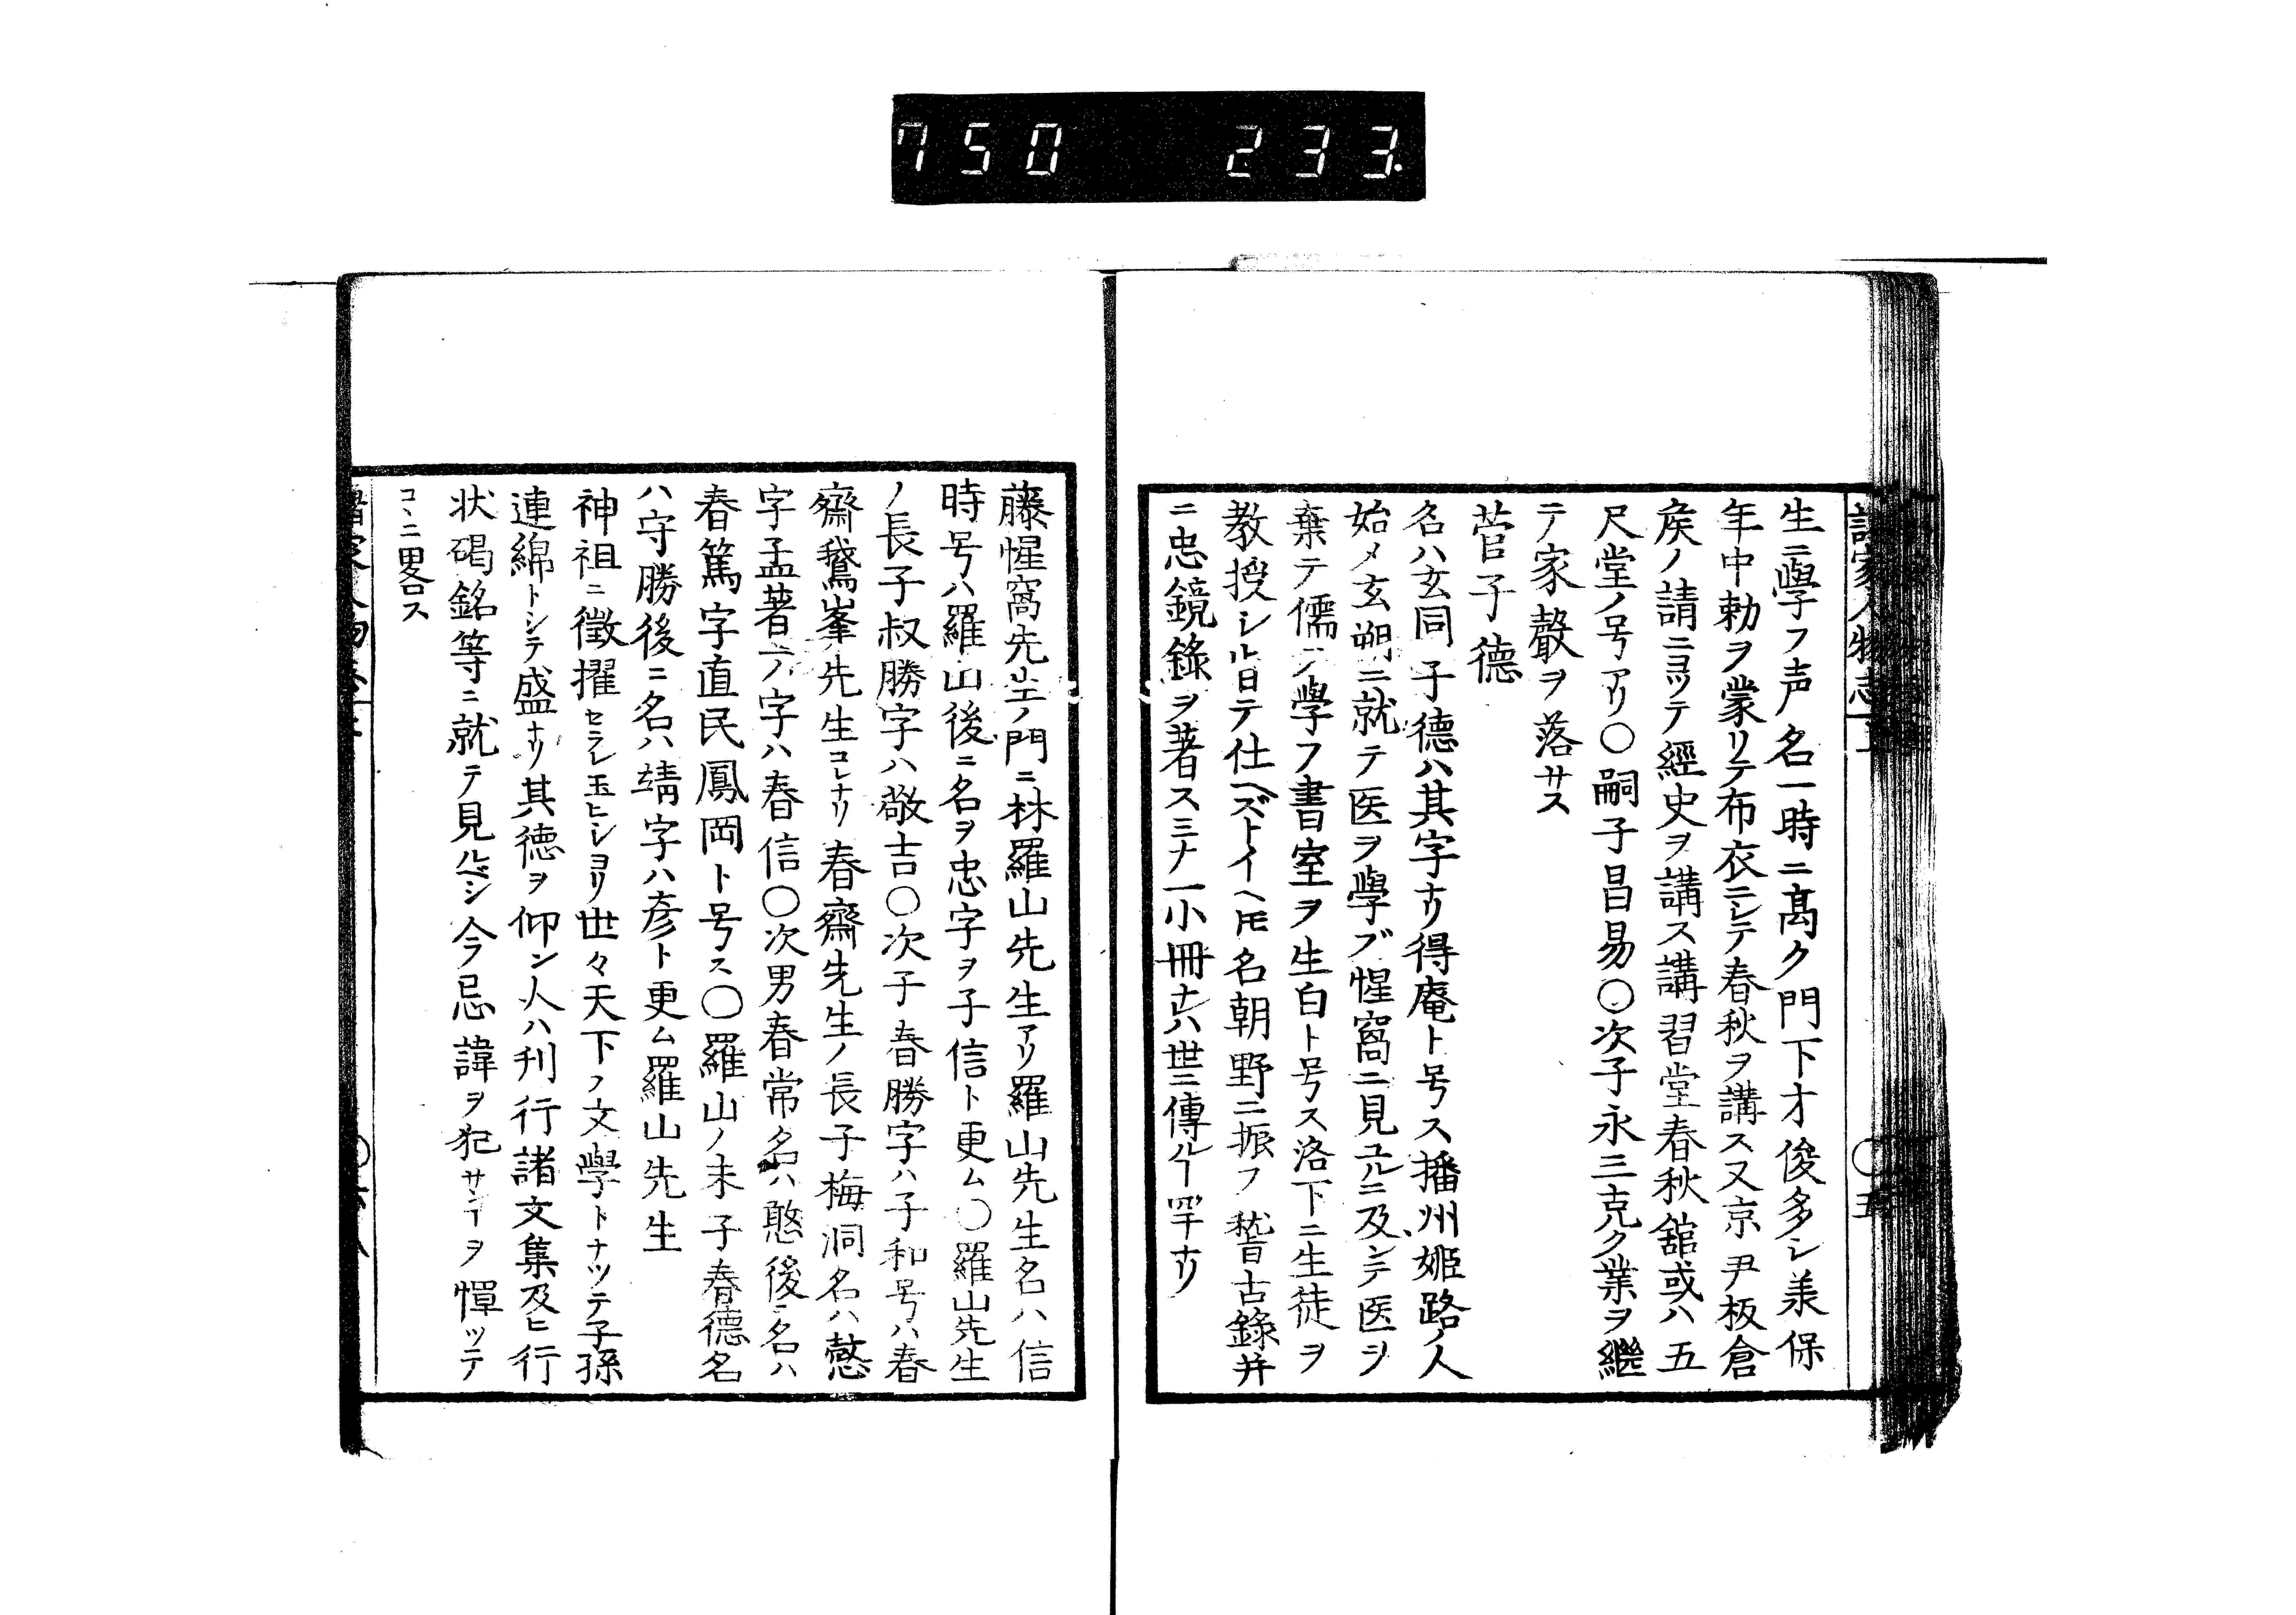 750 233
諸家人物志 上 〇五
生ニ學フ声名一時ニ髙ク門下才俊多シ美保
年中勅ヲ蒙リテ布衣ニシテ春秋ヲ講ス又京尹板倉
矦ノ請ニヨツテ經史ヲ講ス講習堂春秋舘或ハ五
尺堂ノ号アリ〇嗣子昌易〇次子永三克ク業ヲ繼
テ家聲ヲ落サス
菅子德
名ハ玄同子德ハ其字ナリ得庵ト号ス播州姫路ノ人
始メ玄朔ニ就テ医ヲ學ブ惺窩ニ見ユルニ及ンテ医ヲ
棄テ儒ヲ學フ書室ヲ生白ト号ス洛下ニ生徒ヲ
教授シ出テ仕ヘズトイヘ𪜈名朝野ニ振フ䅲古錄并
ニ忠鏡錄ヲ著スミナ一小冊ナレハ世ニ傳ルヿ罕ナリ
藤惺窩先生ノ門ニ林羅山先生アリ羅山先生名ハ信
時号ハ羅山後ニ名ヲ忠字ヲ子信ト更ム〇羅山先生
ノ長子叔勝字ハ敬吉〇次子春勝字ハ子和号ハ春
齋鵞峯先生コレナリ春齋先生ノ長子梅洞名ハ慤
字孟著一ノ字ハ春信〇次男春常名ハ憨後ニ名ハ
春篤字直民鳳岡ト号ス〇羅山ノ末子春德名
ハ守勝後ニ名ハ靖字ハ彦ト更ム羅山先生
神祖ニ徵擢セラレ玉ヒシヨリ世々天下ノ文學トナツテ子孫
連綿トシテ盛ナリ其德ヲ仰ン人ハ刊行諸文集及ヒ行
状碣銘等ニ就テ見ルベシ今忌諱ヲ犯サンヿヲ憚ツテ
コヽニ畧ス